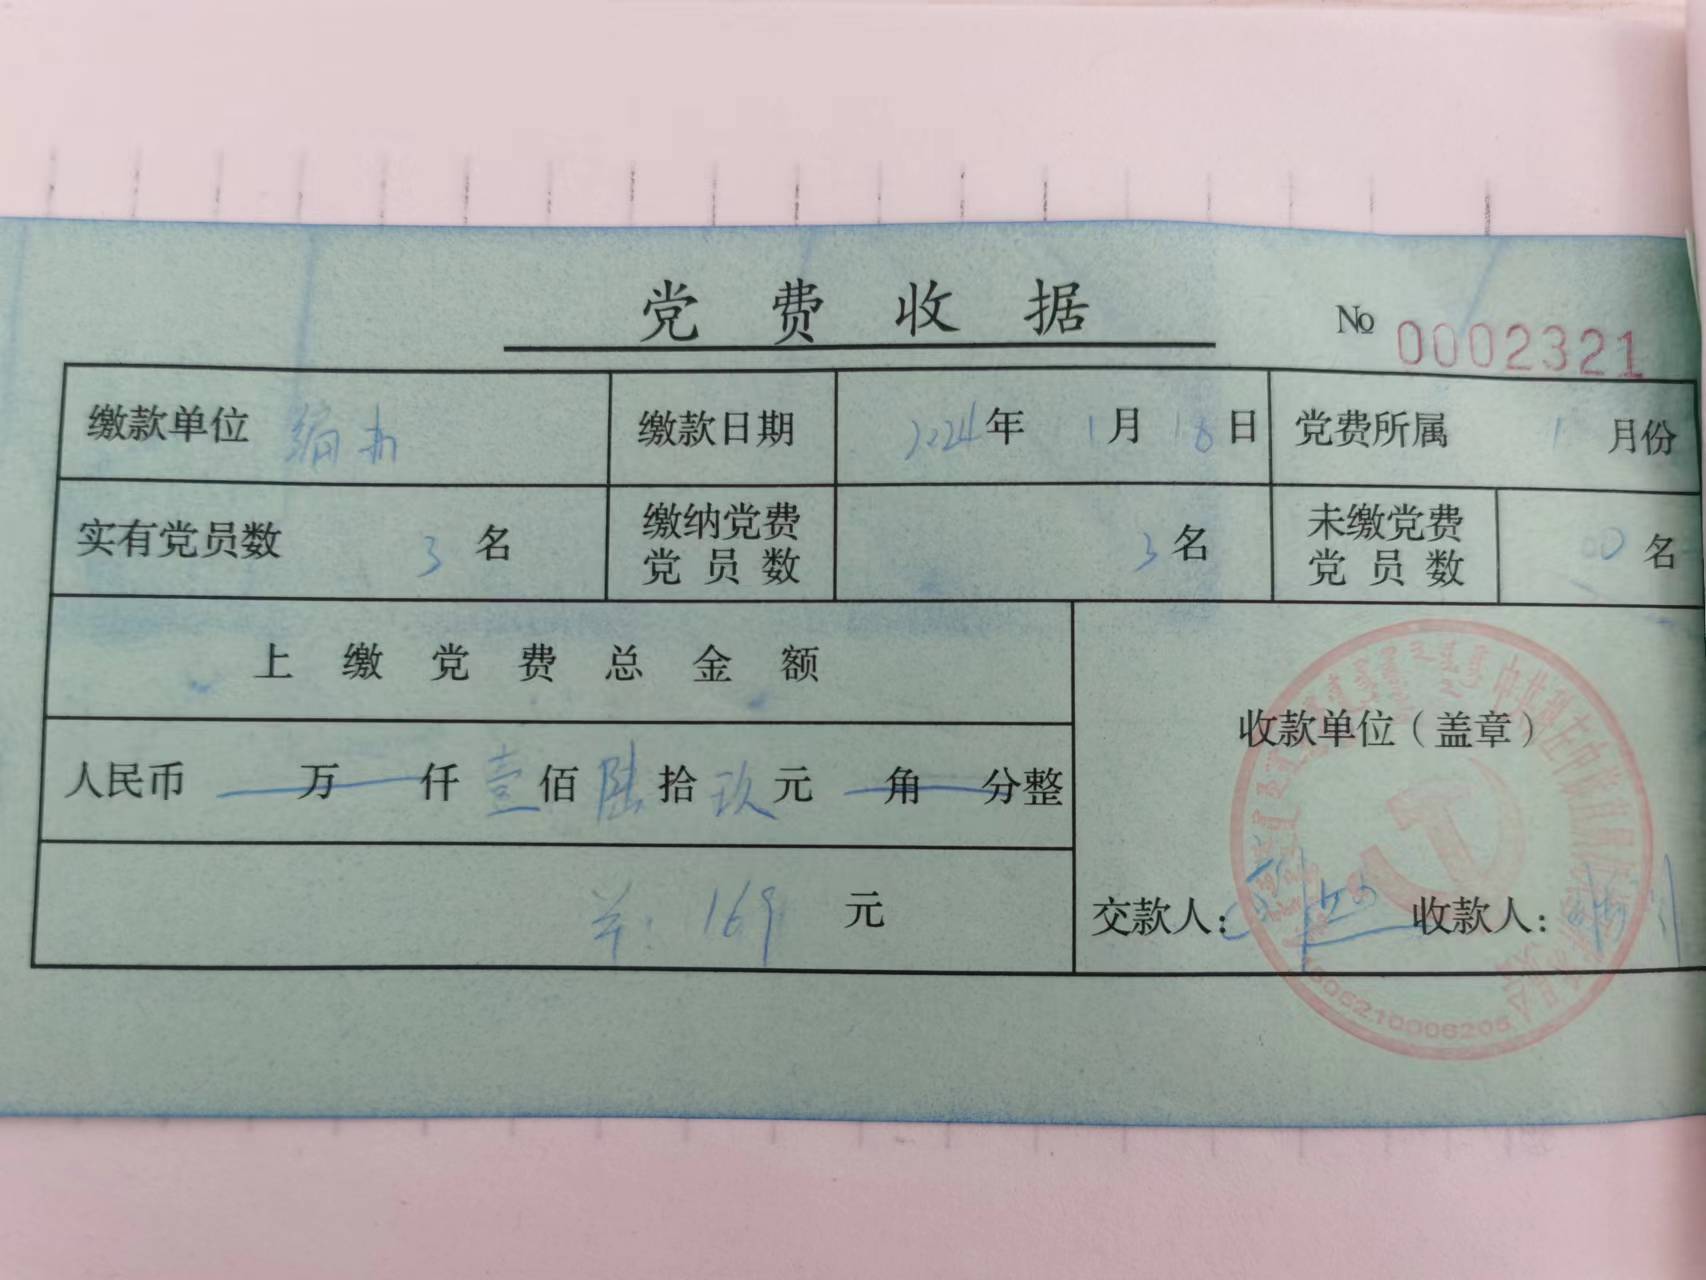 党费收据
№ 0002321
缴款单位 编办 缴款日期 2024年1月18日 党费所属 1月份
实有党员数 3名 缴纳党费党员数 3名 未缴党费党员数 0名
上缴党费总金额
人民币 万 仟 壹佰 陆拾 玖元 角 分整
收款单位（盖章）
169 元
交款人： 收款人：